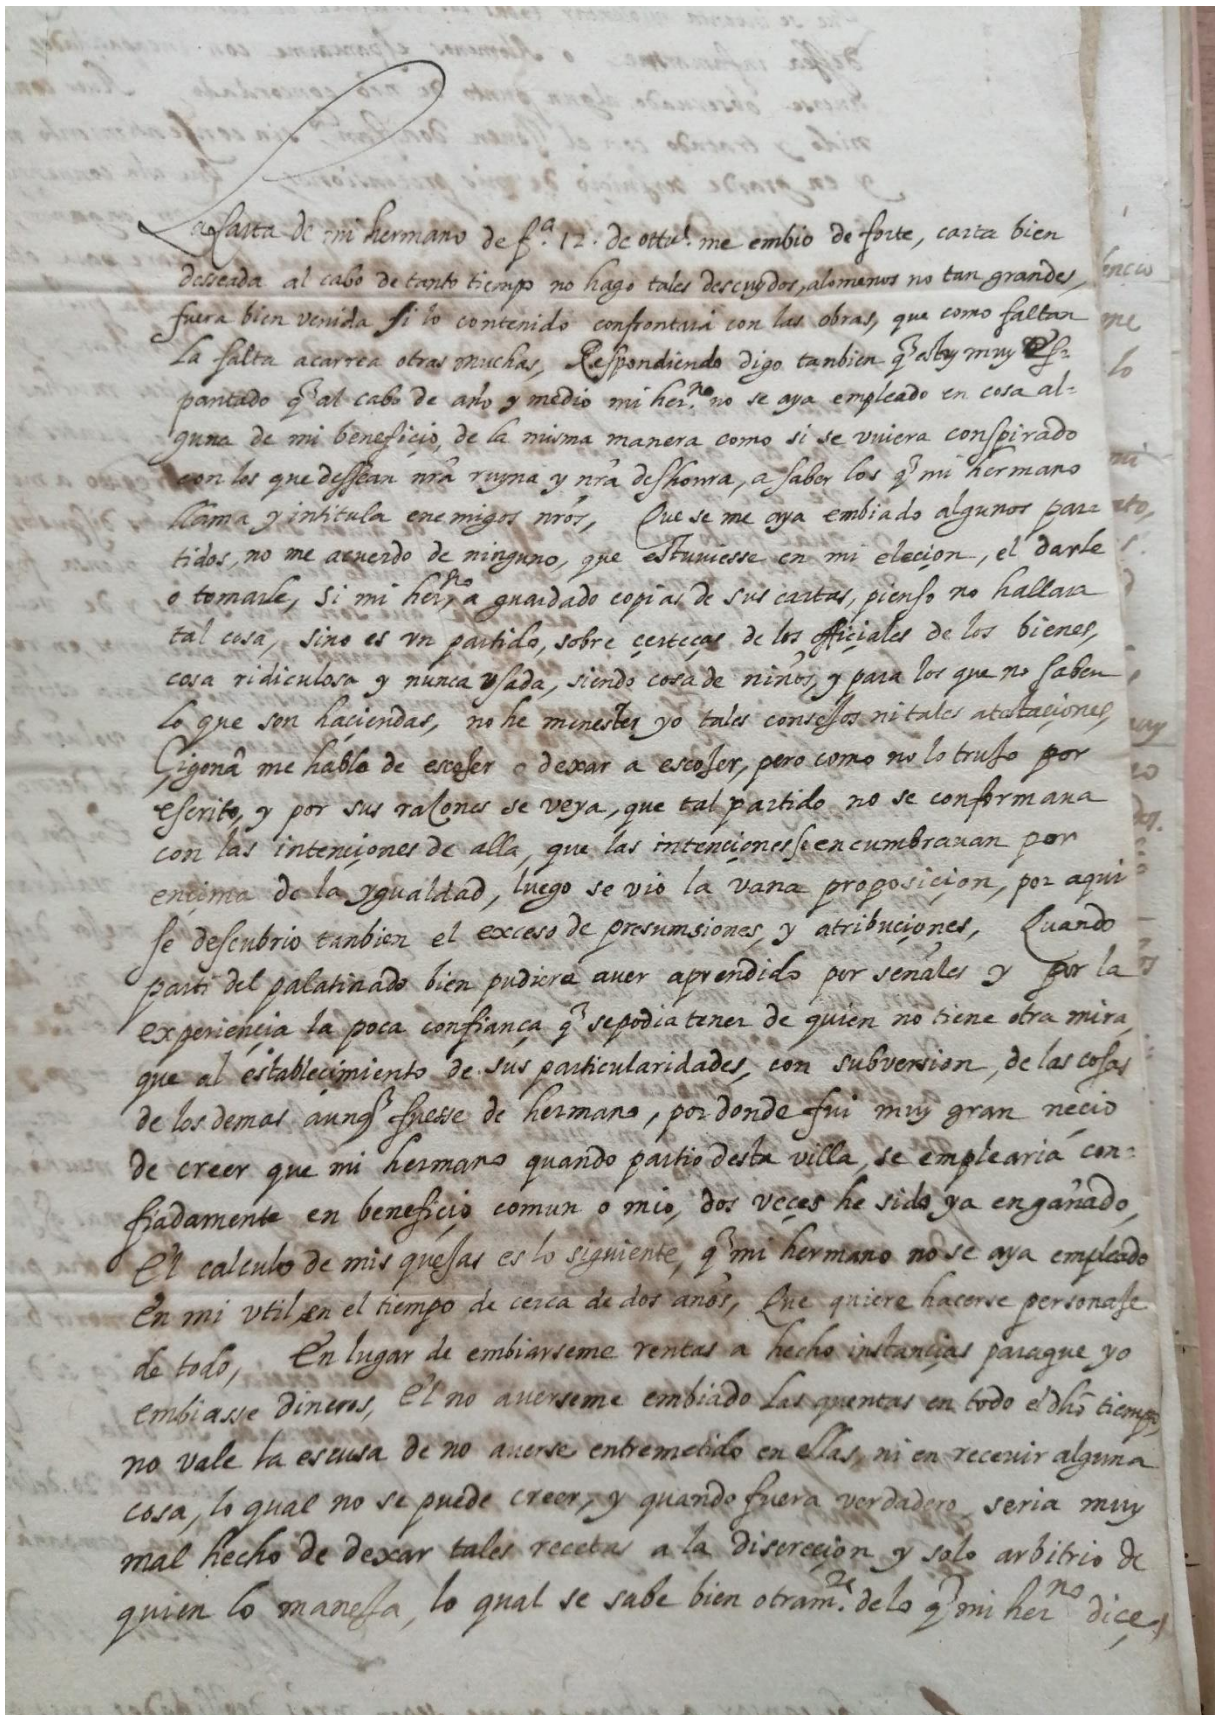 La Carta de mi hermano de f.ª 12. de ottu.ᵉ me embio de forte, carta bien
desseada al cabo de tanto tiempo no hago tales descuydos, alomenos no tan grandes,
fuera bien venida si lo contenido confrontara con las obras, que como faltan
la falta acarrea otras muchas, Respondiendo digo tanbien q̃ estoy muy esp-
pantado q̃ al cabo de año y medio mi her.ⁿᵒ no se aya empleado en cosa al-
guna de mi beneficio, de la misma manera como si se vuiera conspirado
con los que dessean nr̃a ruyna y nr̃a deshonra, a saber los q̃ mi hermano
llama y intitula enemigos nr̃os, Que se me aya embiado algunos par-
tidos, no me acuerdo de ninguno, que estuuiesse en mi eleçion, el darle
o tomarle, Si mi herⁿᵒ a guardado copias de sus cartas, pienso no hallara
tal cosa, sino es vn partido, sobre çerteças de los officiales de los bienes,
cosa ridiculosa y nunca vsada, siendo cosa de niños, y para los que no saben
lo que son haçiendas, no he menester yo tales conseJos ni tales atestaçiones,
Gigona me hablo de escoJer o dexar a escoJer, pero como no lo truJo por
escrito, y por sus raZones se veya, que tal partido no se conformaua
con las intençiones de alla, que las intençiones se encumbrauan por
ençima de la ygualdad, luego se vio la vana proposiçion, por aqui
se descubrio tanbien el exceso de presumsiones, y atribuçiones, Quando
parti del palatinado bien pudiera auer aprendido por señales y por la
experiençia la poca confiança q̃ se podia tener de quien no tiene otra mira
que al establecimiento de sus particularidades, con subversion, de las cosas
de los demas aunq̃ fuesse de hermano, por donde fui muy gran neçio
de creer que mi hermano quando partio desta villa, se emplearia con-
fiadamente en benefiçio comun o mio, dos veçes he sido ya engañado,
El calculo de mis queJas es lo siguiente, q̃ mi hermano no se aya empleado
en mi vtil, en el tiempo de cerca de dos años, Que quiere hacerse personaJe
de todo, En lugar de embiarseme rentas a hecho instançias paraque yo
embiasse dineros, El no auerseme embiado las quentas en todo el dhõ tiempo,
no vale la escusa de no auerse entremetido en ellas, ni en receuir alguna
cosa, lo qual no se puede creer, y quando fuera verdadero, seria muy
mal hecho de dexar tales recetas a la discreçion y solo arbitrio de
quien lo maneJa, lo qual se sabe bien otram.ᵗᵉ de lo q̃ mi herⁿᵒ diçe,